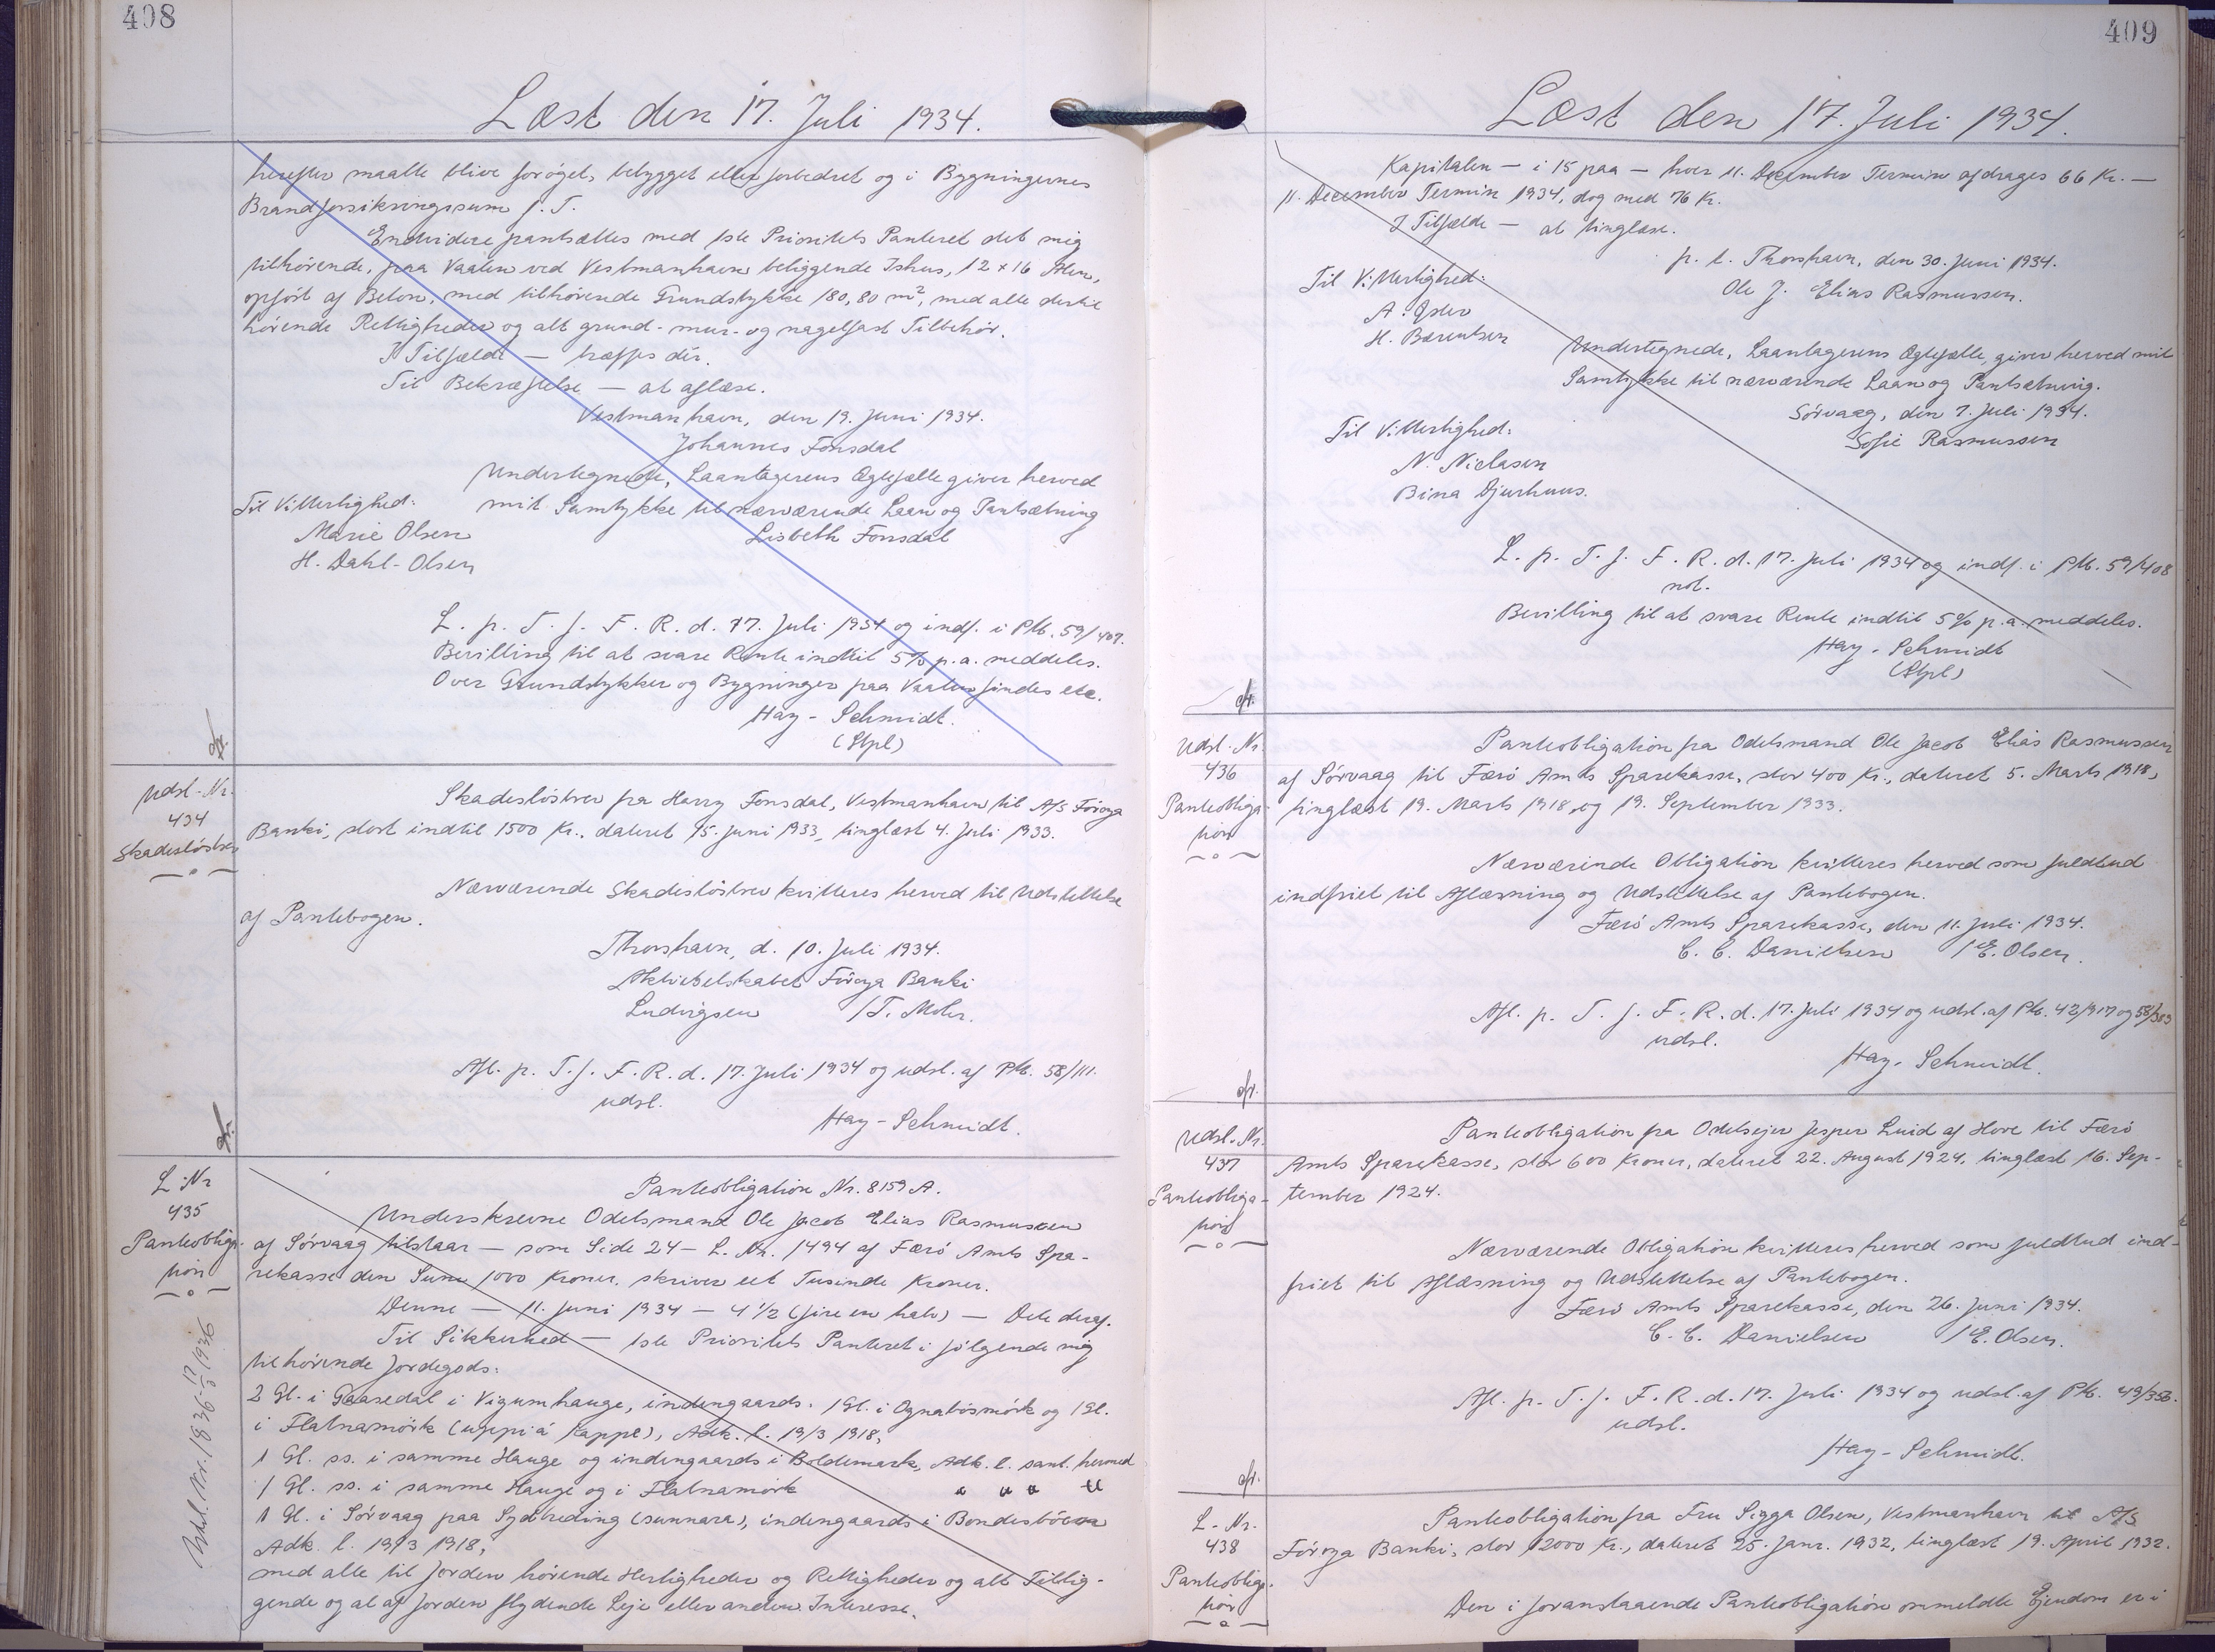 408
Læst den 17. Juli 1934.
herefter maatte blive forøget, bebygget eller forbedret og i Bygningernes
Brandforsikringssum f. T.
Endvidere pantsættes med 1ste Prioritets Panteret det mig
tilhørende, paa Vaalen ved Vestmanhavn beliggende Ishus, 12 x 16 Alen,
opført af Beton, med tilhørende Grundstykke 180,80 m², med alle dertil
hørende Rettigheder og alt grund- mur- og nagelfast Tilbehør.
I Tilfælde — træffes dér.
Til Bekræftelse — at aflæse.
Vestmanhavn, den 19. Juni 1934.
Johannes Fonsdal
Undertegnede, Laantagerens Ægtefælle giver herved
mit Samtykke til nærværende Laan og Pantsætning
Lisbeth Fonsdal
Til Vitterlighed:
Marie Olsen
H. Dahl-Olsen
L. p. T. f. F. R. d. 17. Juli 1934 og indf. i Ptb. 59/407.
Bevilling til at svare Rente indtil 5% p.a. meddeles.
Over Grundstykker og Bygninger paa Vaalen findes etc.
Hay-Schmidt.
(Stpl)
Udsl.-Nr.
434
Skadesløsbrev
Skadesløsbrev fra Harry Fonsdal, Vestmanhavn til A/S Føroya
Banki, stort indtil 1500 Kr., dateret 15. Juni 1933, tinglæst 4. Juli 1933.
Nærværende Skadesløsbrev kvitteres herved til Udslettelse
af Pantebogen.
Thorshavn, d. 10. Juli 1934.
Aktieselskabet Føroya Banki
Ludvigsen /T. Mohr.
Afl. p. T. f. F. R. d. 17. Juli 1934 og udsl. af Ptb. 58/111.
udsl.
Hay-Schmidt.
L.-Nr
435
Panteobliga-
tion
Udsl. Nr. 1836-17/3 1936
Panteobligation Nr. 8159 A.
Underskrevne Odelsmand Ole Jacob Elias Rasmussen
af Sørvaag tilstaar — som Side 24 — L. Nr. 1494 af Færø Amts Spa-
rekasse den Sum 1000 Kroner, skriver eet Tusinde Kroner.
Denne — 11. Juni 1934 — 4 1/2 (fire en halv) — Dele deraf.
Til Sikkerhed — 1ste Prioritets Panteret i følgende mig
tilhørende Jordegods:
2 Gl. i Gaasedal i Vigumhauge, indengaards. 1 Gl. i Ognabósmørk og 1 Gl.
i Flatnamørk (uppi á Kappel), Adk. l. 19/3 1918,
1 Gl. ss. i samme Hauge og indengaards i Boldemark, Adk. l. samt. hermed
1 Gl. ss. i samme Hauge og i Flatnamørk " " " "
1 Gl. i Sørvaag paa Sydtreding (sunnara), indengaards i Bondesbøen
Adk. l. 19/3 1918,
med alle til Jorden hørende Herligheder og Rettigheder og alt Tillig-
gende og al af Jorden flydende Leje eller anden Interesse.
409
Læst den 17. Juli 1934.
Kapitalen — i 15 paa — hver 11. December Termin afdrages 66 Kr. —
11. December Termin 1934, dog med 76 Kr.
I Tilfælde — at tinglæse.
p. t. Thorshavn, den 30. Juni 1934.
Ole J. Elias Rasmussen.
Til Vitterlighed:
A.
H. Bærentsen
Undertegnede, Laantagerens Ægtefælle, giver herved mit
Samtykke til nærværende Laan og Pantsætning.
Sørvaag, den 7. Juli 1934.
Sofie Rasmussen
Til Vitterlighed:
N. Niclasen
Bina Djurhuus.
L. p. T. f. F. R. d. 17. Juli 1934 og indf. i Ptb. 59/408
not.
Bevilling til at svare Rente indtil 5% p.a. meddeles.
Hay-Schmidt
(Stpl)
Udsl. Nr.
436
Panteobliga-
tion
Panteobligation fra Odelsmand Ole Jacob Elias Rasmussen
af Sørvaag til Færø Amts Sparekasse, stor 400 Kr., dateret 5. Marts 1918,
tinglæst 19. Marts 1918, og 19. September 1933.
Nærværende Obligation kvitteres herved som fuldtud
indfriet til Aflæsning og Udslettelse af Pantebogen.
Færø Amts Sparekasse, den 11. Juli 1934.
C. C. Danielsen /E. Olsen.
Afl. p. T. f. F. R. d. 17. Juli 1934 og udsl. af Ptb. 42/917 og 58/383
udsl.
Hay-Schmidt.
Udsl.-Nr.
437
Panteobliga-
tion
Panteobligation fra Odelsejer Jesper Luid af Hove til Færø
Amts Sparekasse, stor 600 Kroner, dateret 22. August 1924, tinglæst 16. Sep-
tember 1924.
Nærværende Obligation kvitteres herved som fuldtud ind-
friet til Aflæsning og Udslettelse af Pantebogen.
Færø Amts Sparekasse, den 26. Juni 1934.
C. C. Danielsen /E. Olsen.
Afl. p. T. f. F. R. d. 17. Juli 1934 og udsl. af Ptb. 49/356.
udsl.
Hay-Schmidt.
L.-Nr.
438
Panteobliga-
tion
Panteobligation fra Fru Sigga Olsen, Vestmanhavn til A/S
Føroya Banki, stor 12000 Kr., dateret 25. Janr. 1932, tinglæst 19. April 1932.
Den i foranstaaende Panteobligation ommeldte Ejendom er i